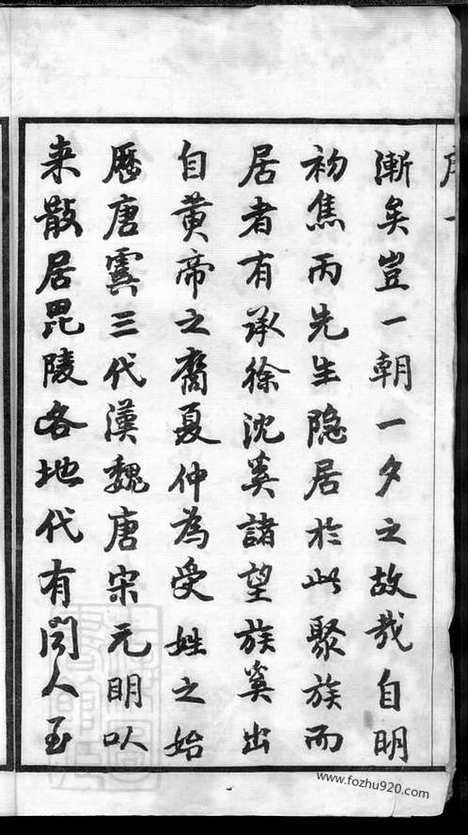 序 一
漸矣豈一朝一夕之故哉自明
初焦丙先生隐居於此聚族而
居者有承徐沈奚諸望族奚出
自黄帝之裔夏仲為受姓之始
歷唐虞三代漢魏唐宋元明以
来散居毘陵各地代有聞人至
www.fozhu920.com